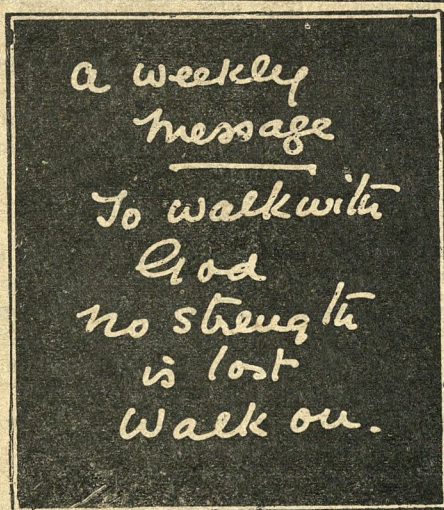 a weekly
message
To walk with
God
no strength
is lost
Walk on.